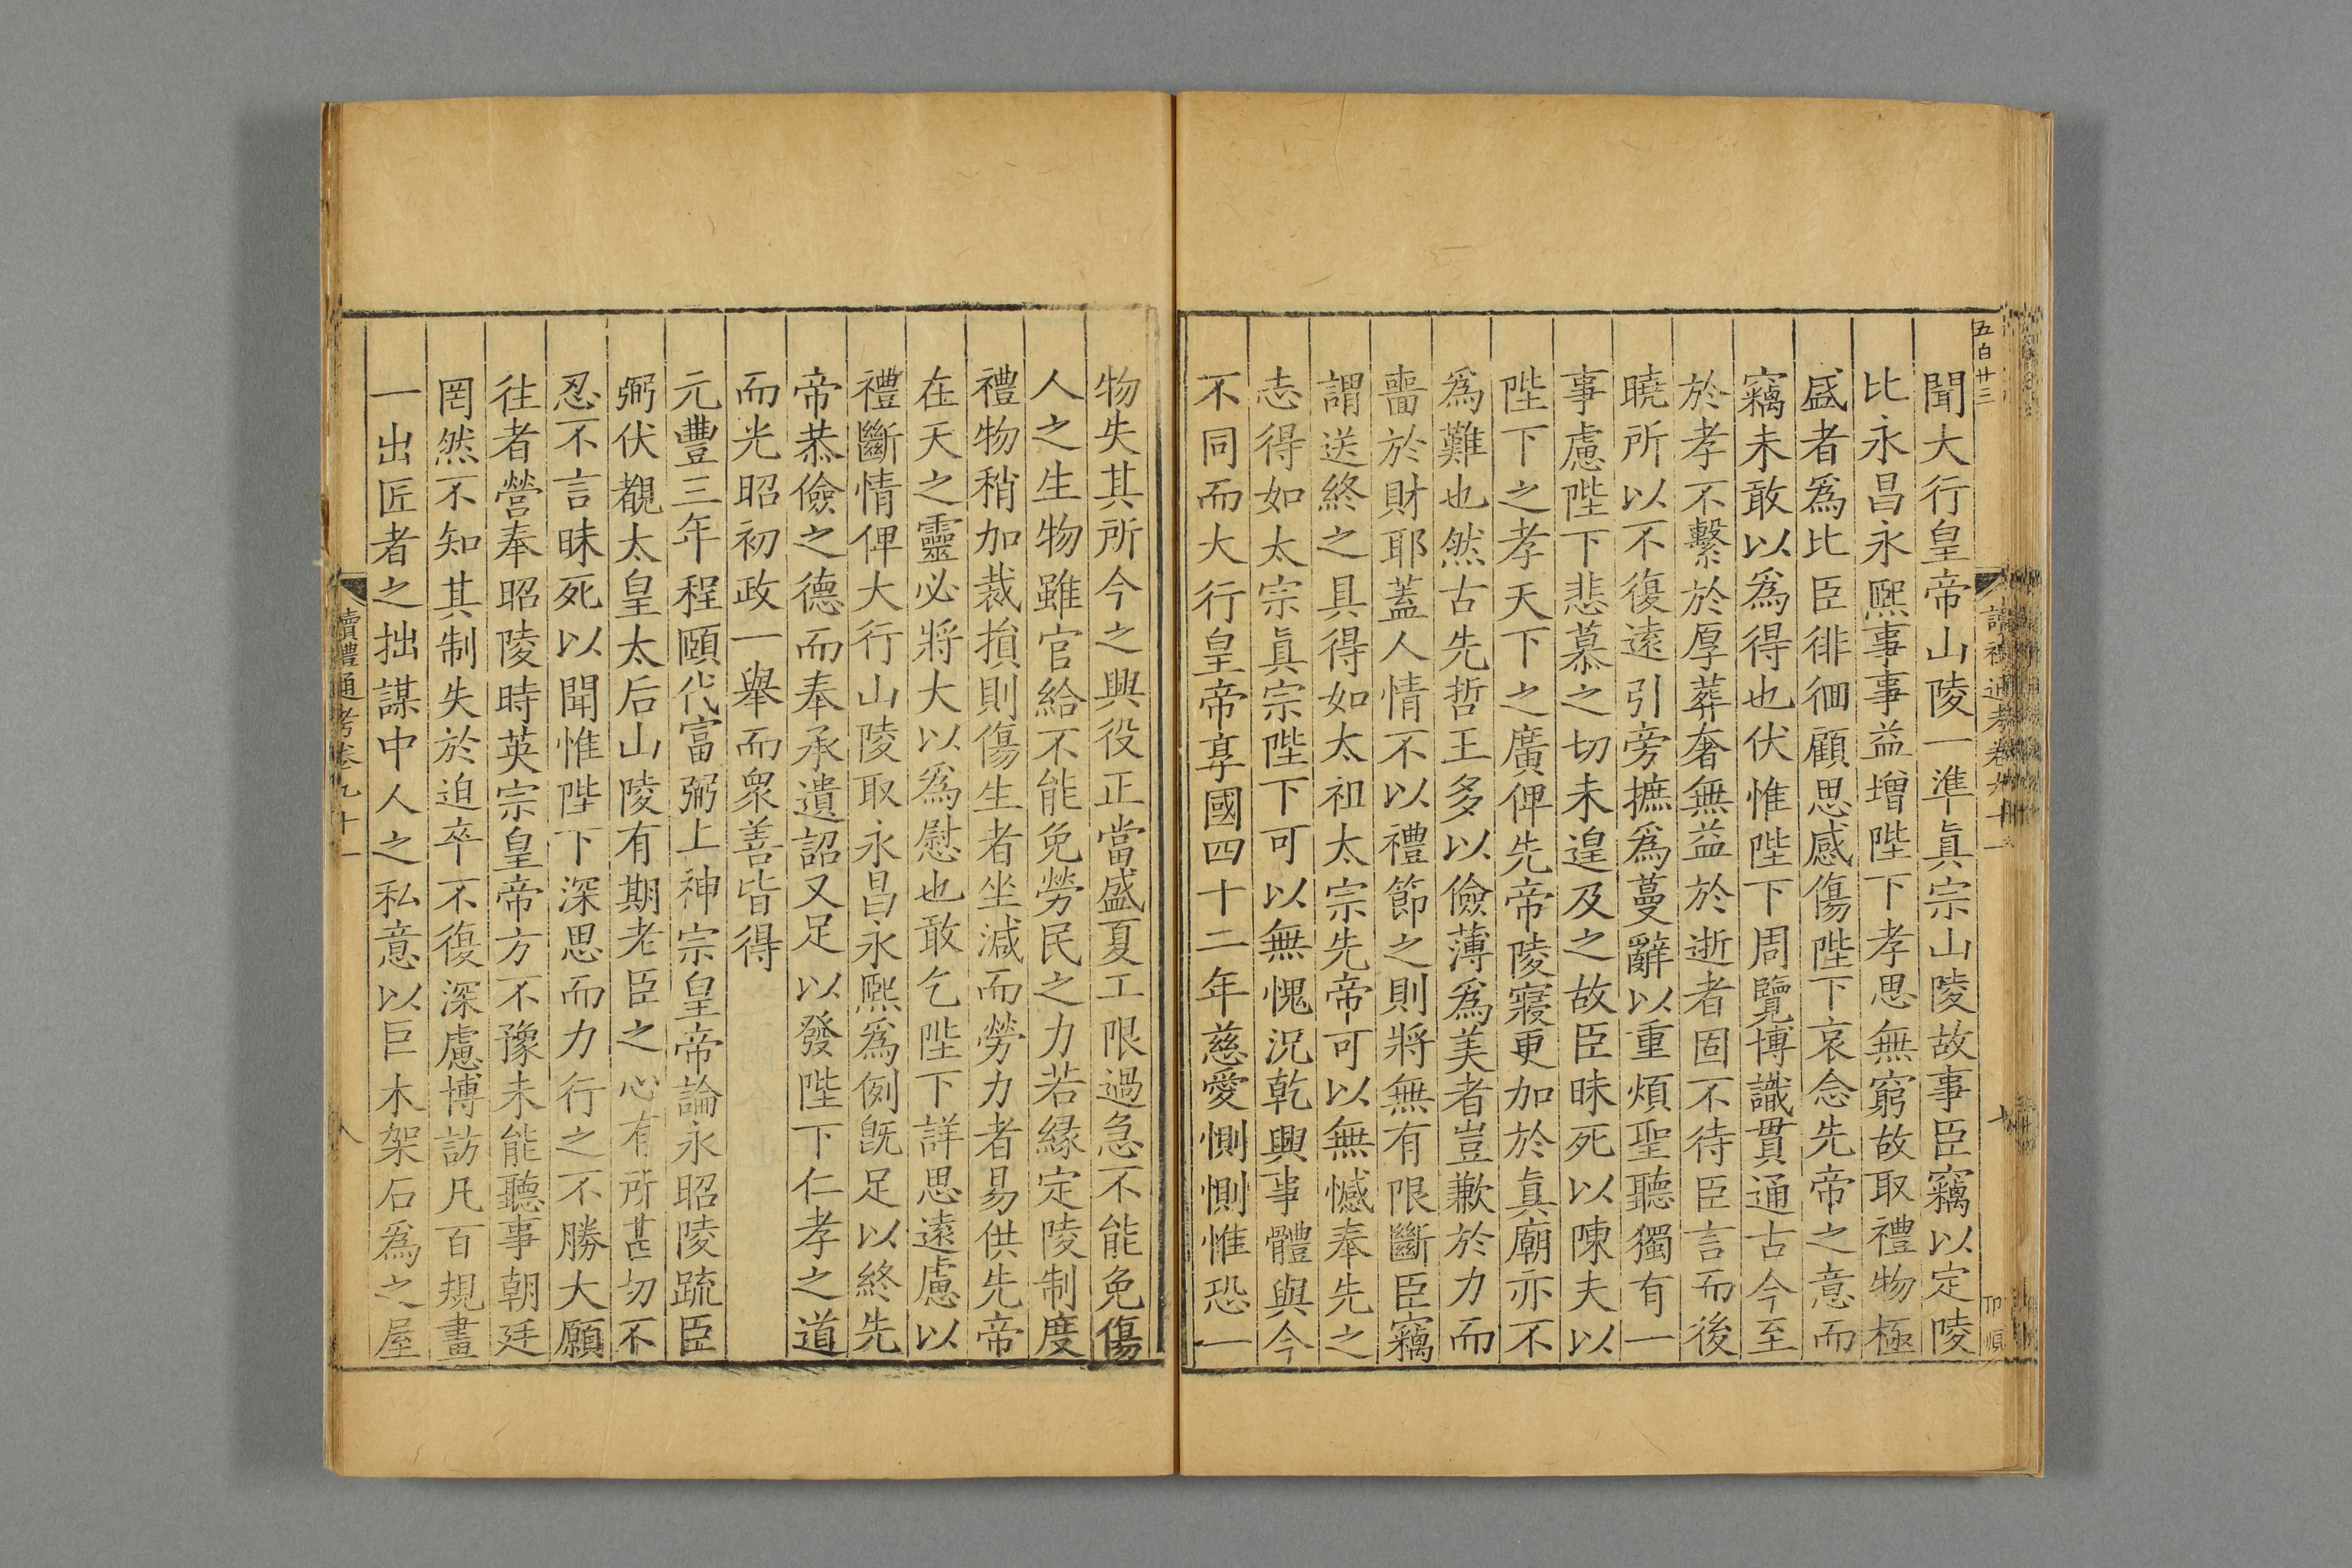 五百廿三
讀禮通考卷九十一
七
聞大行皇帝山陵一準眞宗山陵故事臣竊以定陵
比永昌永熙事事益增陛下孝思無窮故取禮物極
盛者爲比臣徘徊顧思感傷陛下哀念先帝之意而
竊未敢以爲得也伏惟陛下周覽博識貫通古今至
於孝不繫於厚葬奢無益於逝者固不待臣言而後
曉所以不復遠引旁摭爲蔓辭以重煩聖聽獨有一
事慮陛下悲慕之切未遑及之故臣昧死以陳夫以
陛下之孝天下之廣俾先帝陵寢更加於眞廟亦不
爲難也然古先哲王多以儉薄爲美者豈歉於力而
嗇於財耶蓋人情不以禮節之則將無有限斷臣竊
謂送終之具得如太祖太宗先帝可以無憾奉先之
志得如太宗眞宗陛下可以無愧況乾興事體與今
不同而大行皇帝享國四十二年慈愛惻惻惟恐一
物失其所今之興役正當盛夏工限過急不能免傷
人之生物雖官給不能免勞民之力若緣定陵制度
禮物稍加裁損則傷生者坐減而勞力者易供先帝
在天之靈必將大以爲慰也敢乞陛下詳思遠慮以
禮斷情俾大行山陵取永昌永熙爲例旣足以終先
帝恭儉之德而奉承遺詔又足以發陛下仁孝之道
而光昭初政一舉而衆善皆得
元豐三年程頤代富弼上神宗皇帝論永昭陵疏臣
弼伏覩太皇太后山陵有期老臣之心有所甚切不
忍不言昧死以聞惟陛下深思而力行之不勝大願
往者營奉昭陵時英宗皇帝方不豫未能聽事朝廷
罔然不知其制失於迫卒不復深慮博訪凡百規畫
一出匠者之拙謀中人之私意以巨木架石爲之屋
讀禮通考卷九十一
八